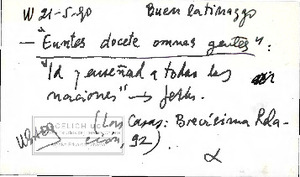 W 21-5-90 Buen latinazgo
— "Euntes docete omnes gentes":
"Id y enseñad a todas las
naciones" → Jesús.
(Las Casas: Brevísima Rela-
ción, 92).
α